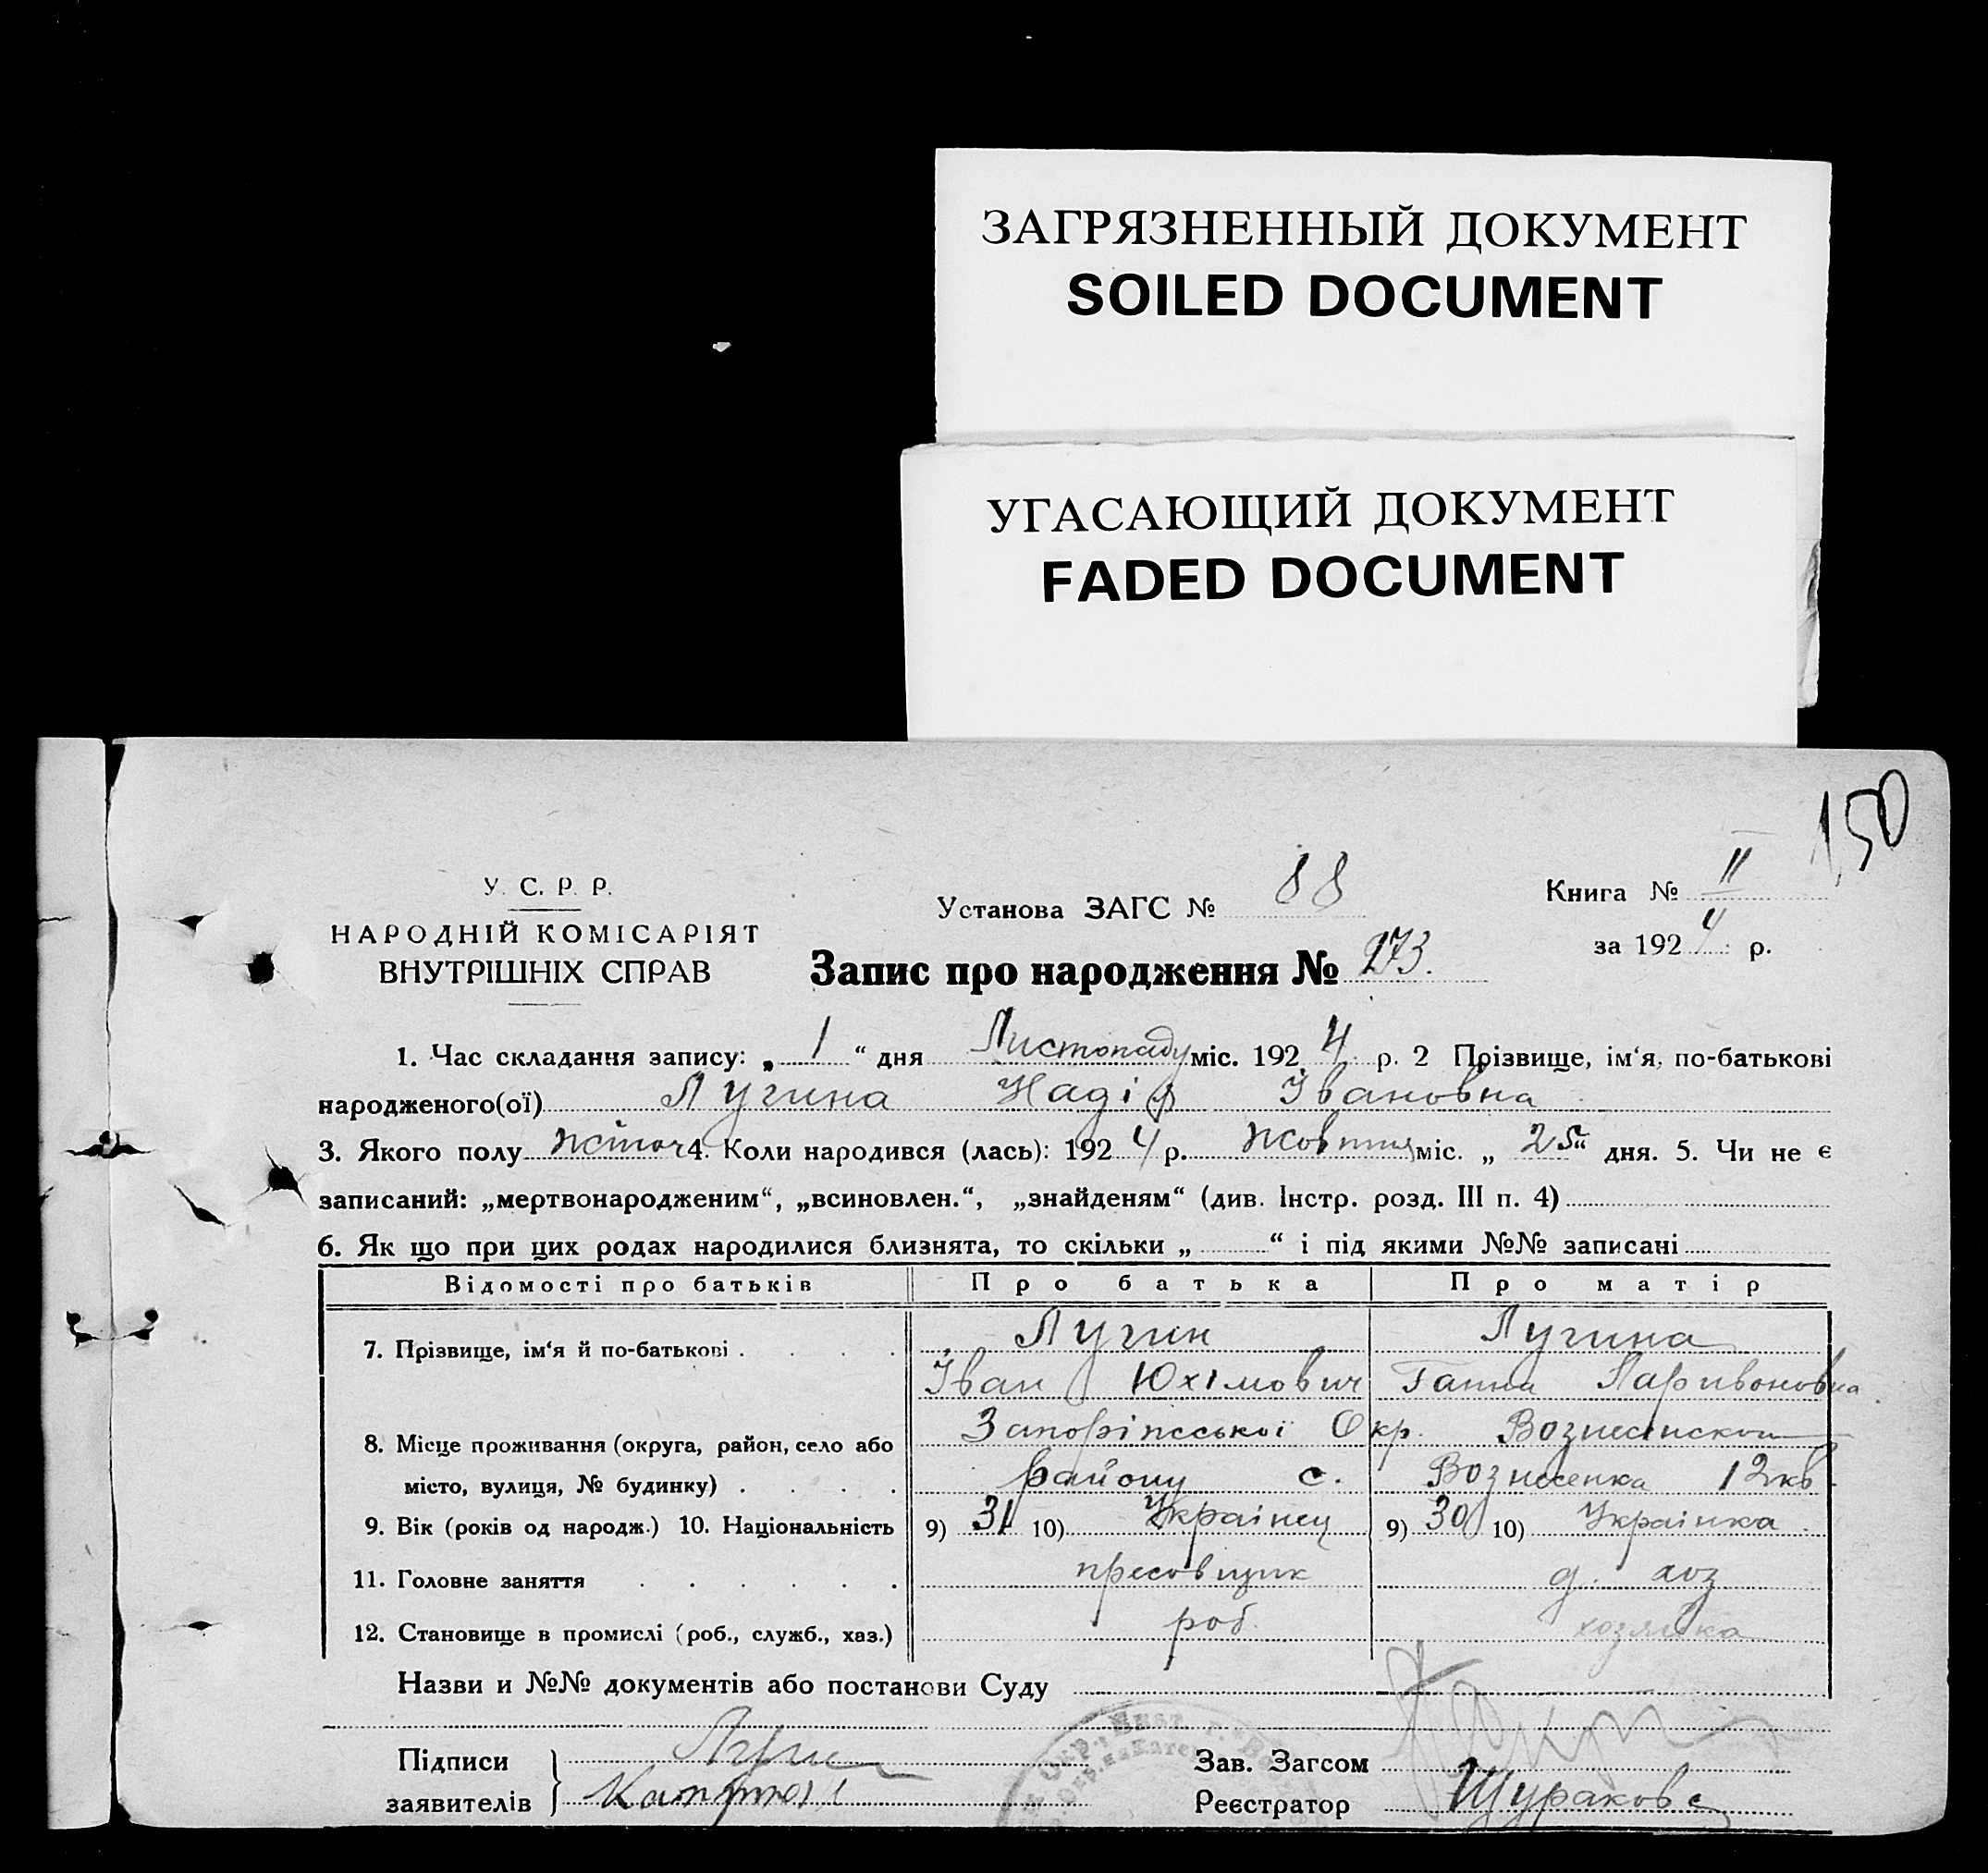 ЗАГРЯЗНЕННЫЙ ДОКУМЕНТ
SOILED DOCUMENT
УГАСАЮЩИЙ ДОКУМЕНТ
FADED DOCUMENT
150
У. С. Р. Р.
НАРОДНІЙ КОМІСАРІЯТ
ВНУТРІШНІХ СПРАВ
Установа ЗАГС № 88
Запис про народження № 273.
Книга № II
за 1924 р.
1. Час складання запису: „1“ дня Листопаду міс. 1924 р. 2 Прізвище, ім‘я, по-батькові
народженого(ої) Лугина Надія Івановна
3. Якого полу жіноч 4. Коли народився (лась): 1924 р. Жовтня міс. „25“ дня. 5. Чи не є
записаний: „мертвонародженим“, „всиновлен.“, „знайденям“ (див. Інстр. розд. III п. 4)
6. Як що при цих родах народилися близнята, то скільки „ “ і під якими №№ записані
Відомості про батьків Про батька Про матір
7. Прізвище, ім‘я й по-батькові . . . . Лугин Лугина
Іван Юхімович Ганна Ларивоновна
8. Місце проживання (округа, район, село або Запоріжської Окр. Вознесенского
місто, вулиця, № будинку) . . . . району с. Вознесенка 12 кв.
9. Вік (років од народж.) 10. Національність 9) 31 10) Украінец 9) 30 10) Украінка
11. Головне заняття . . . . . . пресовщик д. хоз
12. Становище в промислі (роб., служб., хаз.) роб. хозяйка
Назви и №№ документів або постанови Суду
Підписи
заявителів
Зав. Загсом
Реєстратор Щуракова